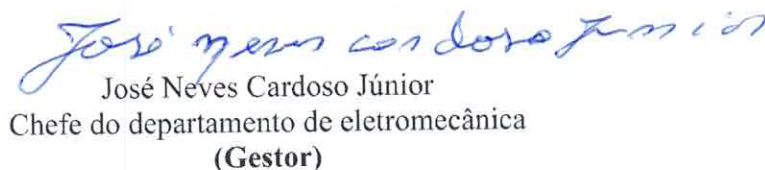 José Neves Cardoso Júnior
José Neves Cardoso Júnior
Chefe do departamento de eletromecânica
(Gestor)